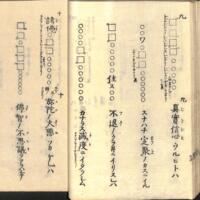 九
九 真實信心ウルヒトハ
スナハチ定聚ノカスニイル
不退ノクラ井ニイリヌレハ
カナラス滅度ニイタラシム
十
諸佛
弥陀ノ大悲フカケレハ
佛智ノ不思議ヲアラハシテ